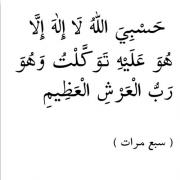 حَسْبِيَ اللهُ لَا إِلٰهَ إِلَّا
هُوَ عَلَيْهِ تَوَكَّلْتُ وَهُوَ
رَبُّ الْعَرْشِ الْعَظِيمِ
( سبع مرات )